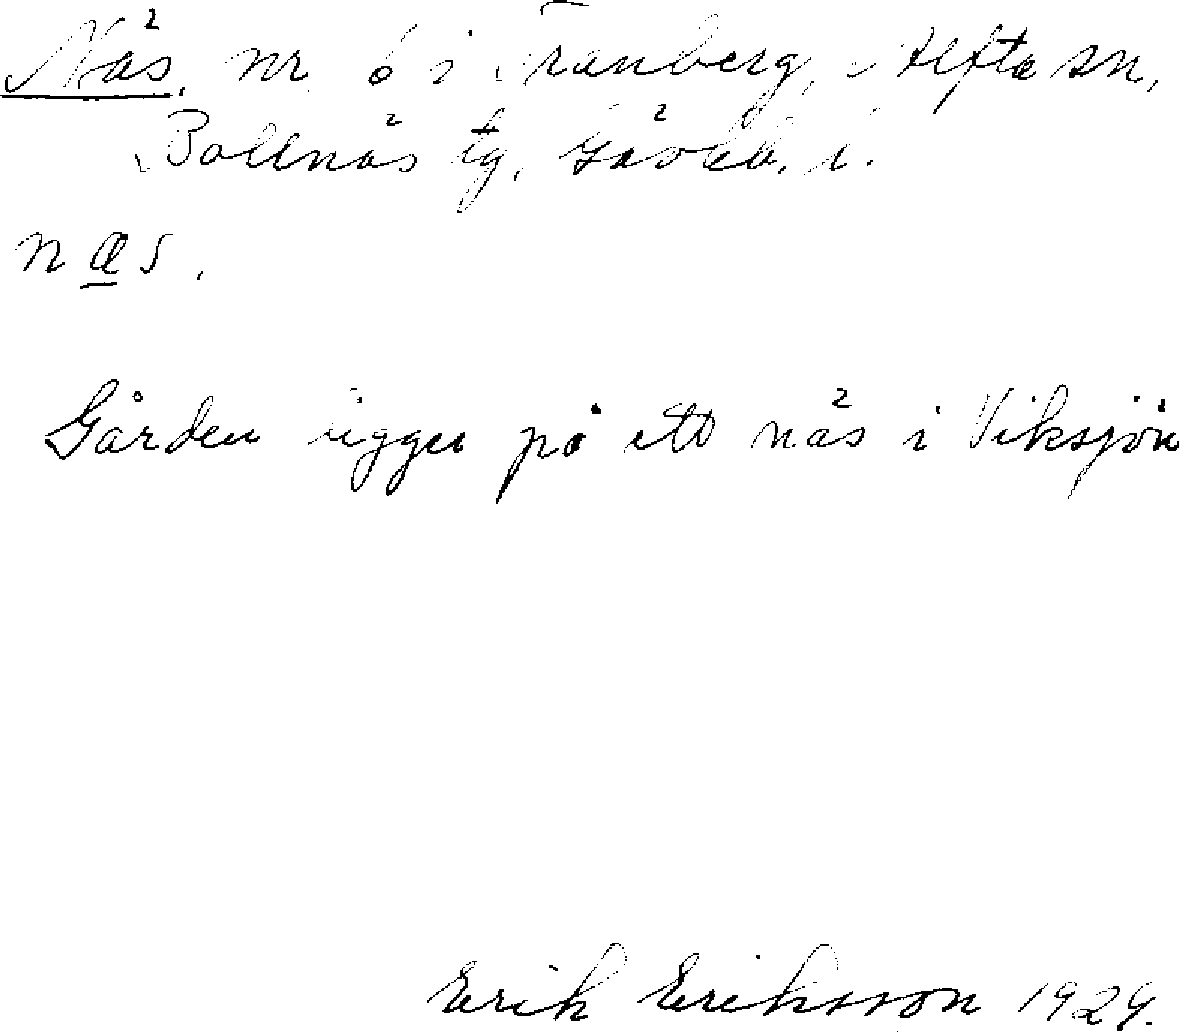 Näs, nr 6 i Tranberg, Alfta sn,
Bollnäs tg, Gävleb. l.
n æ s.
Gården ligger på ett näs i Viksjön
Erik Eriksson 1929.